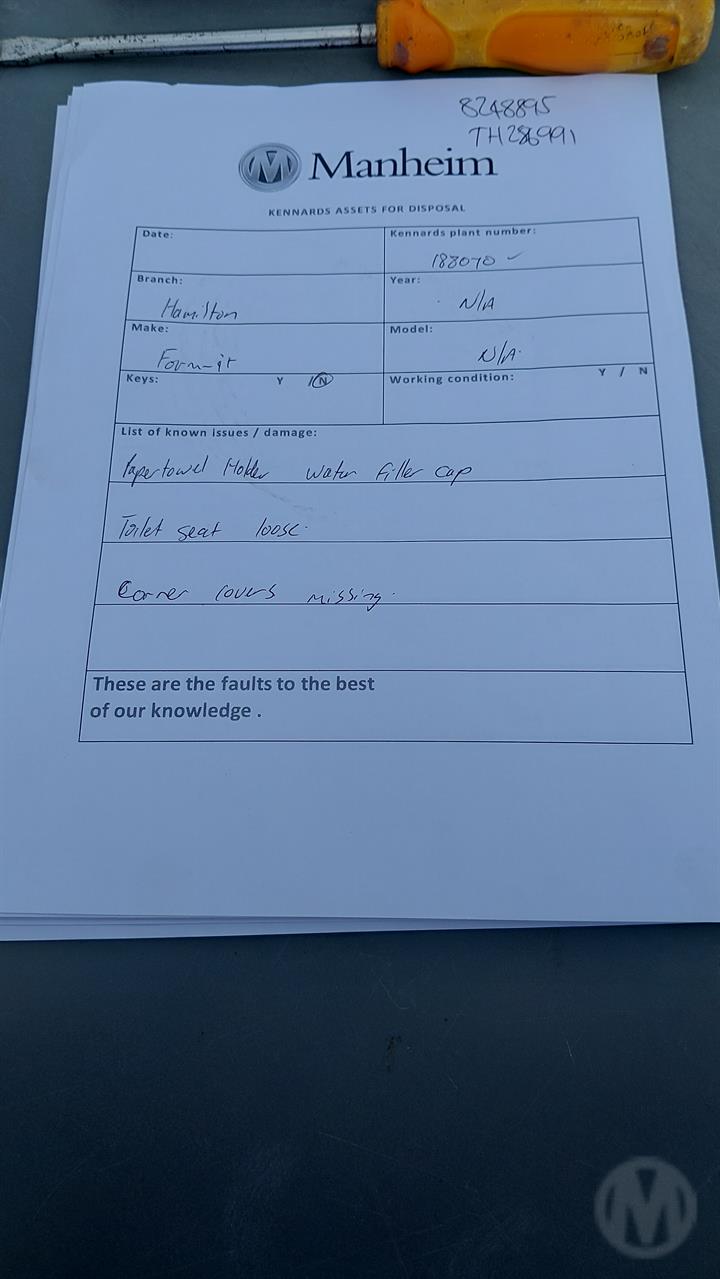 8248895
TH286991
Manheim
KENNARDS ASSETS FOR DISPOSAL
Date:
Kennards plant number:
183070
Branch:
Hamilton
Year:
N/A
Make:
Form-it
Model:
N/A.
Keys: Y / N
Working condition: Y / N
List of known issues / damage:
Papertowel Holder water filler cap
Toilet seat loose.
Corner covers missing.
These are the faults to the best
of our knowledge .